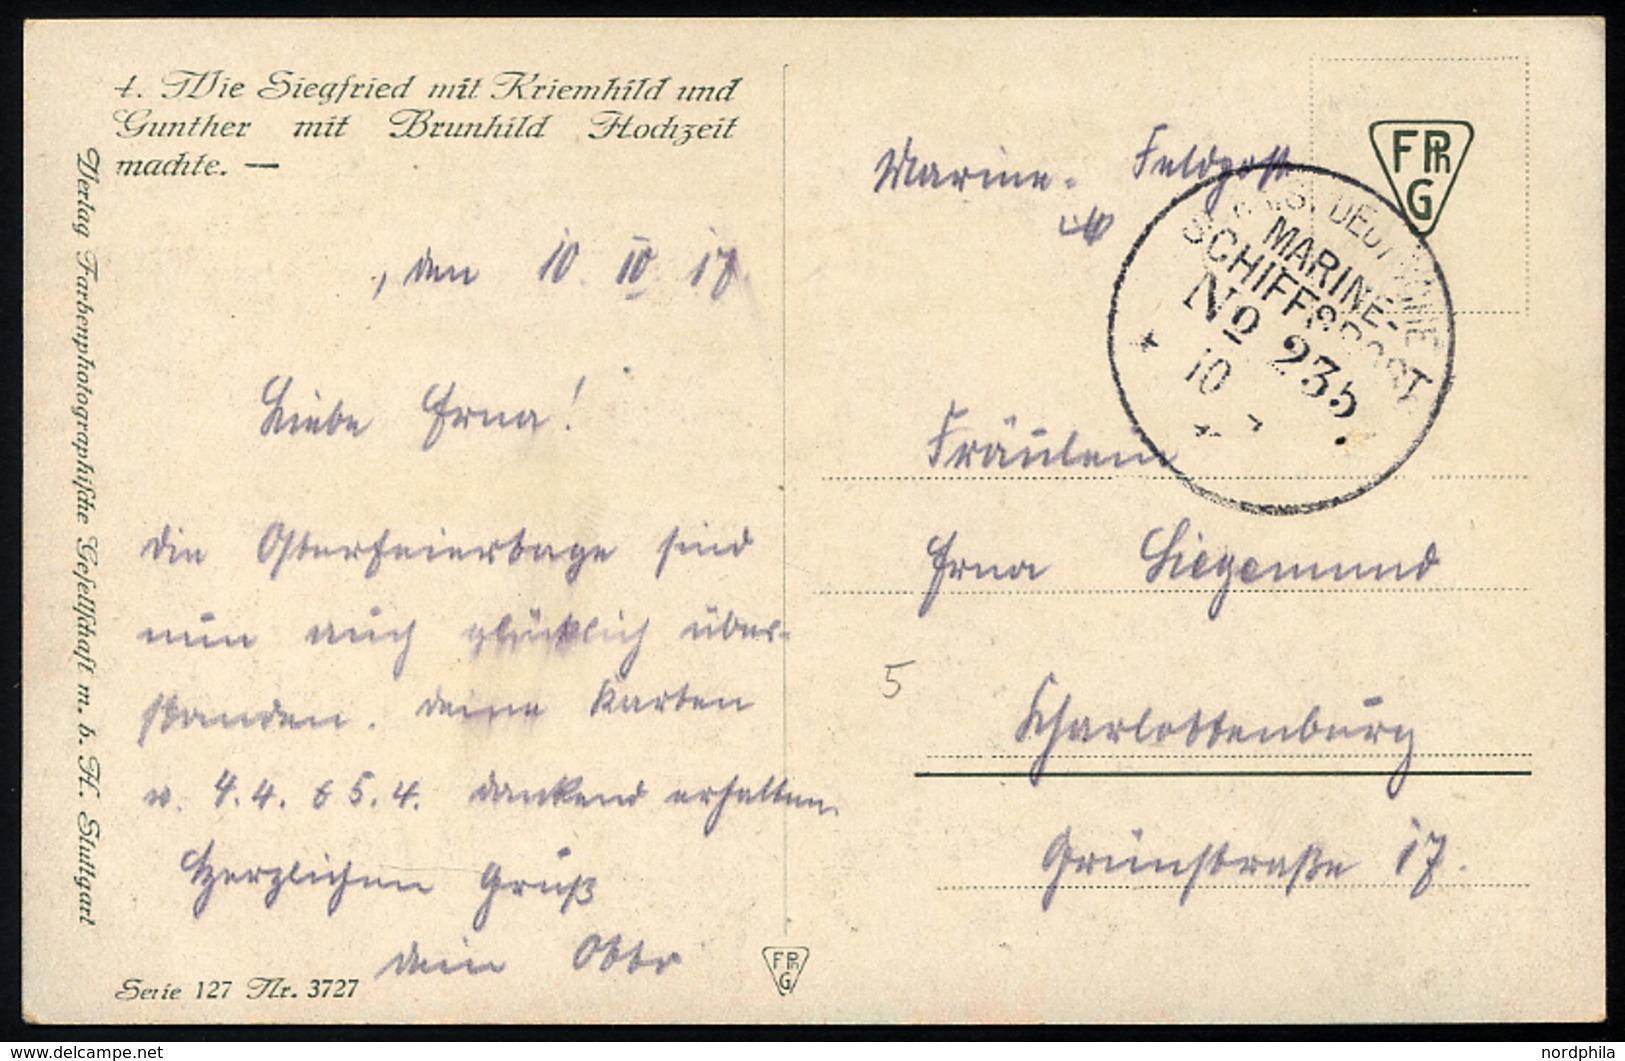 4. Wie Siegfried mit Kriemhild und
Gunther mit Brunhild Hochzeit
machte. —
Verlag Farbenphotographische Gesellschaft m. b. H. Stuttgart
, den 10. IV 17.
Liebe Erna!
die Osterfeiertage sind
nun auch glücklich über-
standen. Deine Karten
v. 4.4. & 5.4. dankend erhalten.
Herzlichen Gruß
dein Otto
Serie 127 Nr. 3727
FPh
G
Marine-Feldpost
FPh
G
MARINE-
SCHIFFSPOST
No 235
10
Fräulein
Erna Siegemund
5
Charlottenburg
Grünstraße 17.
nordphila